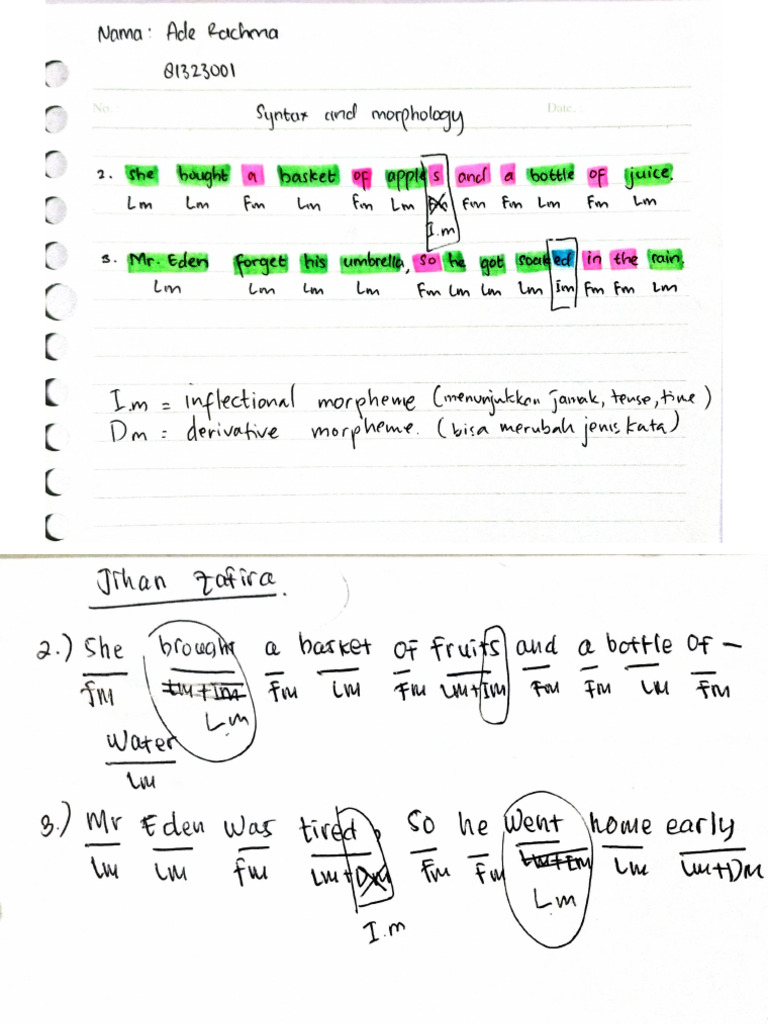 Nama: Ade Rachma
81323001
No. Date.
Syntax and morphology
2. she bought a basket of apples and a bottle of juice.
Lm Lm Fm Lm Fm Lm Fm Fm Lm Fm Lm
I.m
3. Mr. Eden forget his umbrella, so he got soaked in the rain.
Lm Lm Lm Lm Fm Lm Lm Lm Im Fm Fm Lm
I.m = inflectional morpheme (menunjukkan jamak, tense, time)
Dm = derivative morpheme. (bisa merubah jenis kata)
Jihan Zafira.
2.) She brought a basket of fruits and a bottle of -
fm Lm+Im fm Lm Fm Lm+Im Fm Fm Lm Fm
Lm
Water
Lm
3.) Mr Eden was tired, so he went home early
Lm Lm fm Lm+Dm Fm Fm Lm+Im Lm Lm+Dm
I.m Lm